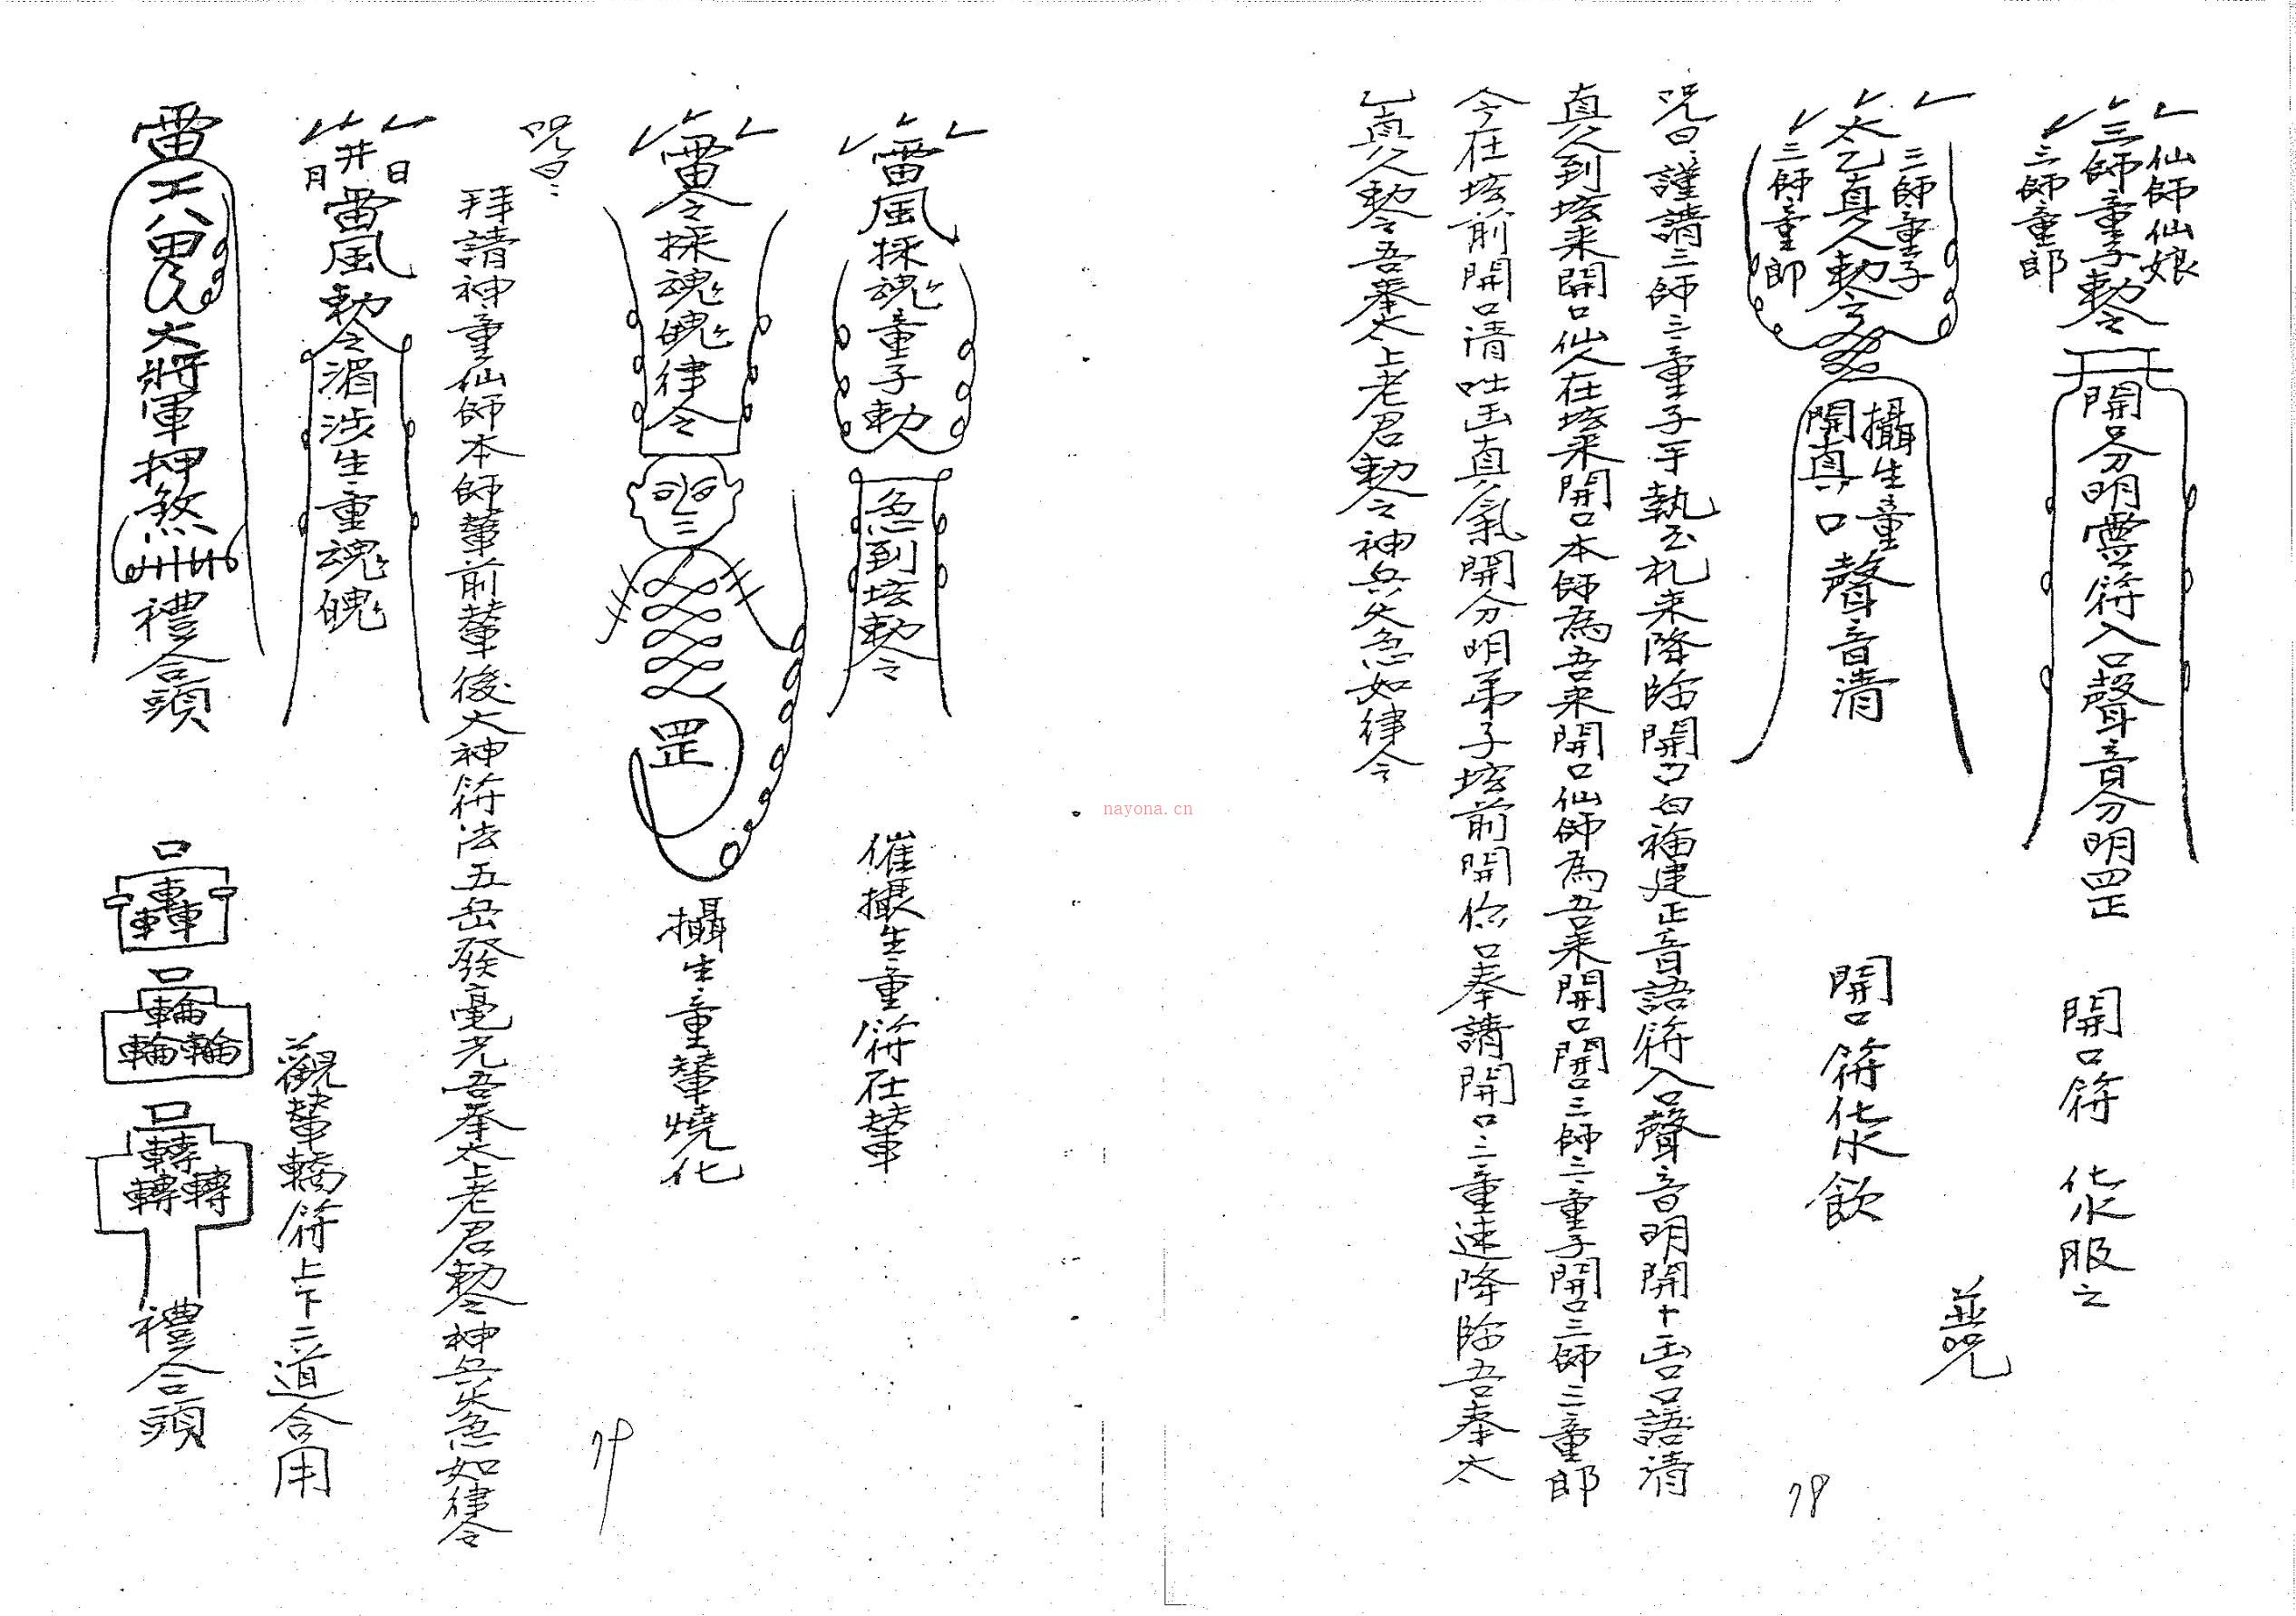 仙師仙娘
三師童子勅令
三師童郎
開口分明靈符入口聲音分明罡
開口符 化水服之
三師童子
太乙真人勅令
三師童郎
攝生童
開真口
聲音清
開口符化水飲
並咒
咒曰謹請三師三童子手執玉札来降臨開口白福建正音語符入口聲音明開口出口語清
真人到坛来開口仙人在坛来開口本師為吾来開口仙師為吾来開口開口三師三童子開口三師三童郎
今在坛前開口清吐出真氣開分明弟子坛前開你口奉請開口三童速降臨吾奉太
乙真人勅令吾奉太上老君勅令神兵火急如律令
78
雷風採魂童子勅
急到坛勅令
催攝生童符在輦
雷令採魂魄律令
罡
攝生童輦燒化
咒曰
拜請神童仙師本師輦前輦後大神符法五岳發毫光吾奉太上老君勅令神兵火急如律令
79
日
井
月
雷風勅令
生童魂魄
觀輦轎符上下二道合用
雷
大將軍押煞
禮合頭
口
車車車
口
輪輪輪
口
轉轉轉
禮合頭
nayona.cn